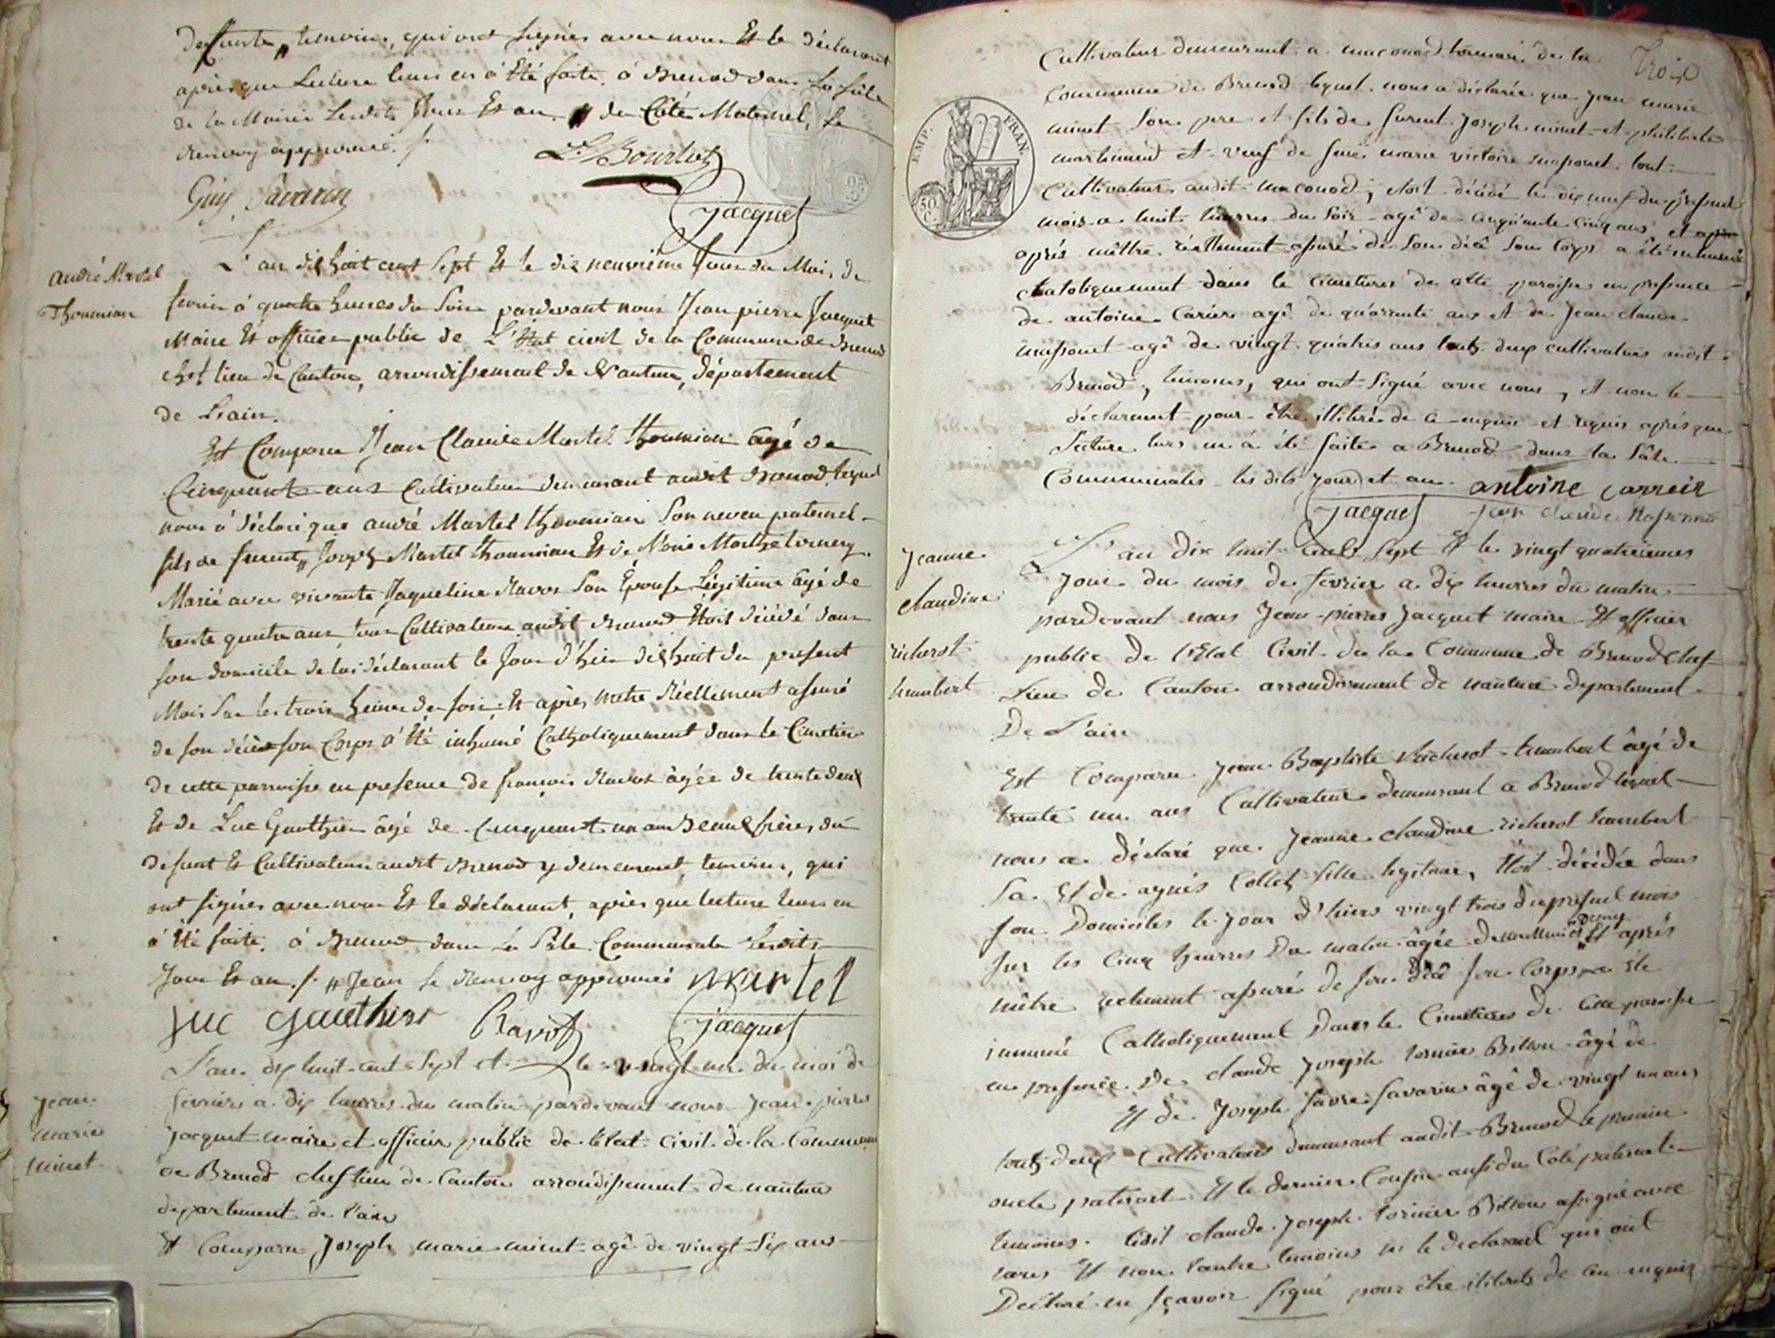 défunte, temoins, qui ont signés avec nous Et le déclarant
après que Lecture leurs en à Été faite. à Brenod dans La Sale
de la Mairie Lesdits Jour Et an. // du Côté Maternel, Le
Renvoy approuvé ./.
L. Bourbet
Guy Savarin
Jacquet
André Martel
Thoumian
L'an dix huit cent Sept Et le dix neuvième Jour du Mois de
fevrier à quatre heures du Soir pardevant nous Jean pierre Jacquet
Maire Et officier public de L'Etat civil de la Commune de Brenod
chef lieu de Canton, arrondissement de Nantua, département
de L'ain.
Est Comparu Jean Claude Martel Thoumian agé de
Cinquante ans Cultivateur demeurant audit Brenod, lequel
nous à déclaré que andré Martel Thoumian Son neveu paternel
fils de feu // Joseph Martel Thoumian Et de Marie Marthe
Marié avec vivante Jaqueline Ravot Son Épouse Légitime agé de
trente quatre ans, tous Cultivateurs audit Brenod Étoit décédé dans
son domicile de lui déclarant le Jour d'hier dix huit du present
Mois Sur les trois heures du soir, Et après m'etre Réellement assuré
de son décès son Corps à Été inhumé Catholiquement dans le Cimetier
de cette parroisse en presence de françois Ravot âgée de trente deux
Et de Luc Gauthier âgé de Cinquante un ans Beaux frères du
défunt Et Cultivateurs audit Brenod y demeurant, temoins, qui
ont signés avec nous Et le déclarant, après que lecture leurs en
à Été faite. à Brenod dans La Sale Communale Lesdits
Jour Et an ./. // Jean le Renvoy approuvé Martel
Luc Gauthier Ravot Jacquet
Jean
marie
minet
L'an dix huit cent Sept et le vingt un du mois de
fevrier a dix heures du matin pardevant nous Jean pierre
jacquet maire et officier public de l'etat civil de la Commune
de Brenod chef lieu de Canton arrondissement de nantua
departement de l'ain
Est Comparu Joseph marie minet agé de vingt Six ans
Troix
Cultivateur demeurant a maconod de la
Commune de Brenod lequel nous a déclaré que Jean marie
minet Son pere et fils de furent Joseph minet et philiberte
et veuf de feue marie victoire massonet tout
Cultivateurs audit maconod, etoit décédé le dix neuf du present
mois a huit heures du Soir agé de cinquante cinq ans et
après m'être réellement assuré de Son décè Son Corps a été inhumé
chatoliquement dans le cimetiere de cette paroisse en presence
de antoine Carier agé de quarante ans et de Jean claude
massonet agé de vingt quatre ans touts deux cultivateurs audit
Brenod, temoins, qui ont Signé avec nous, et non le
déclarant pour être illitéré de ce enquis et requis après que
Lecture leurs en à été faite a Brenod dans la Sale
Communale les dits jour et an. antoine carreir
Jacquet Jean claude Massonet
EMP. FRAN.
50 C.
Jeanne
claudine
richerot
humbert
L'an dix huit cent Sept Et le vingt quatrieme
Jour du mois de fevrier a dix heures du matin
pardevant nous Jean pierre Jacquet maire Et officier
public de l'Etat Civil de la Commune de Brenod Chef
Lieu de Canton arrondissement de nantua departement
De L'ain
Est Comparu Jean Baptiste richerot humbert âgé de
trente un ans Cultivateur demeurant a Brenod lequel
nous a déclaré que Jeanne claudine richerot humbert
Sa Et de agnès Collet fille legitime, Etoit décédée dans
Son Domicile le jour d'hier vingt trois du present mois
Sur les Cinq heures Du matin âgée de Et après
m'être reelement assuré de Son décè Son Corps a Eté
innumé Catholiquement Dans le Cimetiere de cette paroisse
en presence De claude Joseph tornier Billon âgé de
Et de Joseph favre Savarin âgé de vingt un ans
touts deux Cultivateurs demeurant audit Brenod le premier
oncle paternel Et le dernier Cousin aussi du Coté paternel
temoins. ledit claude Joseph tornier Billon a signé avec
nous Et non l'autre temoins ni le declarant qui ont
Declaré ne sçavoir signé pour être illiterés de ceu enquis